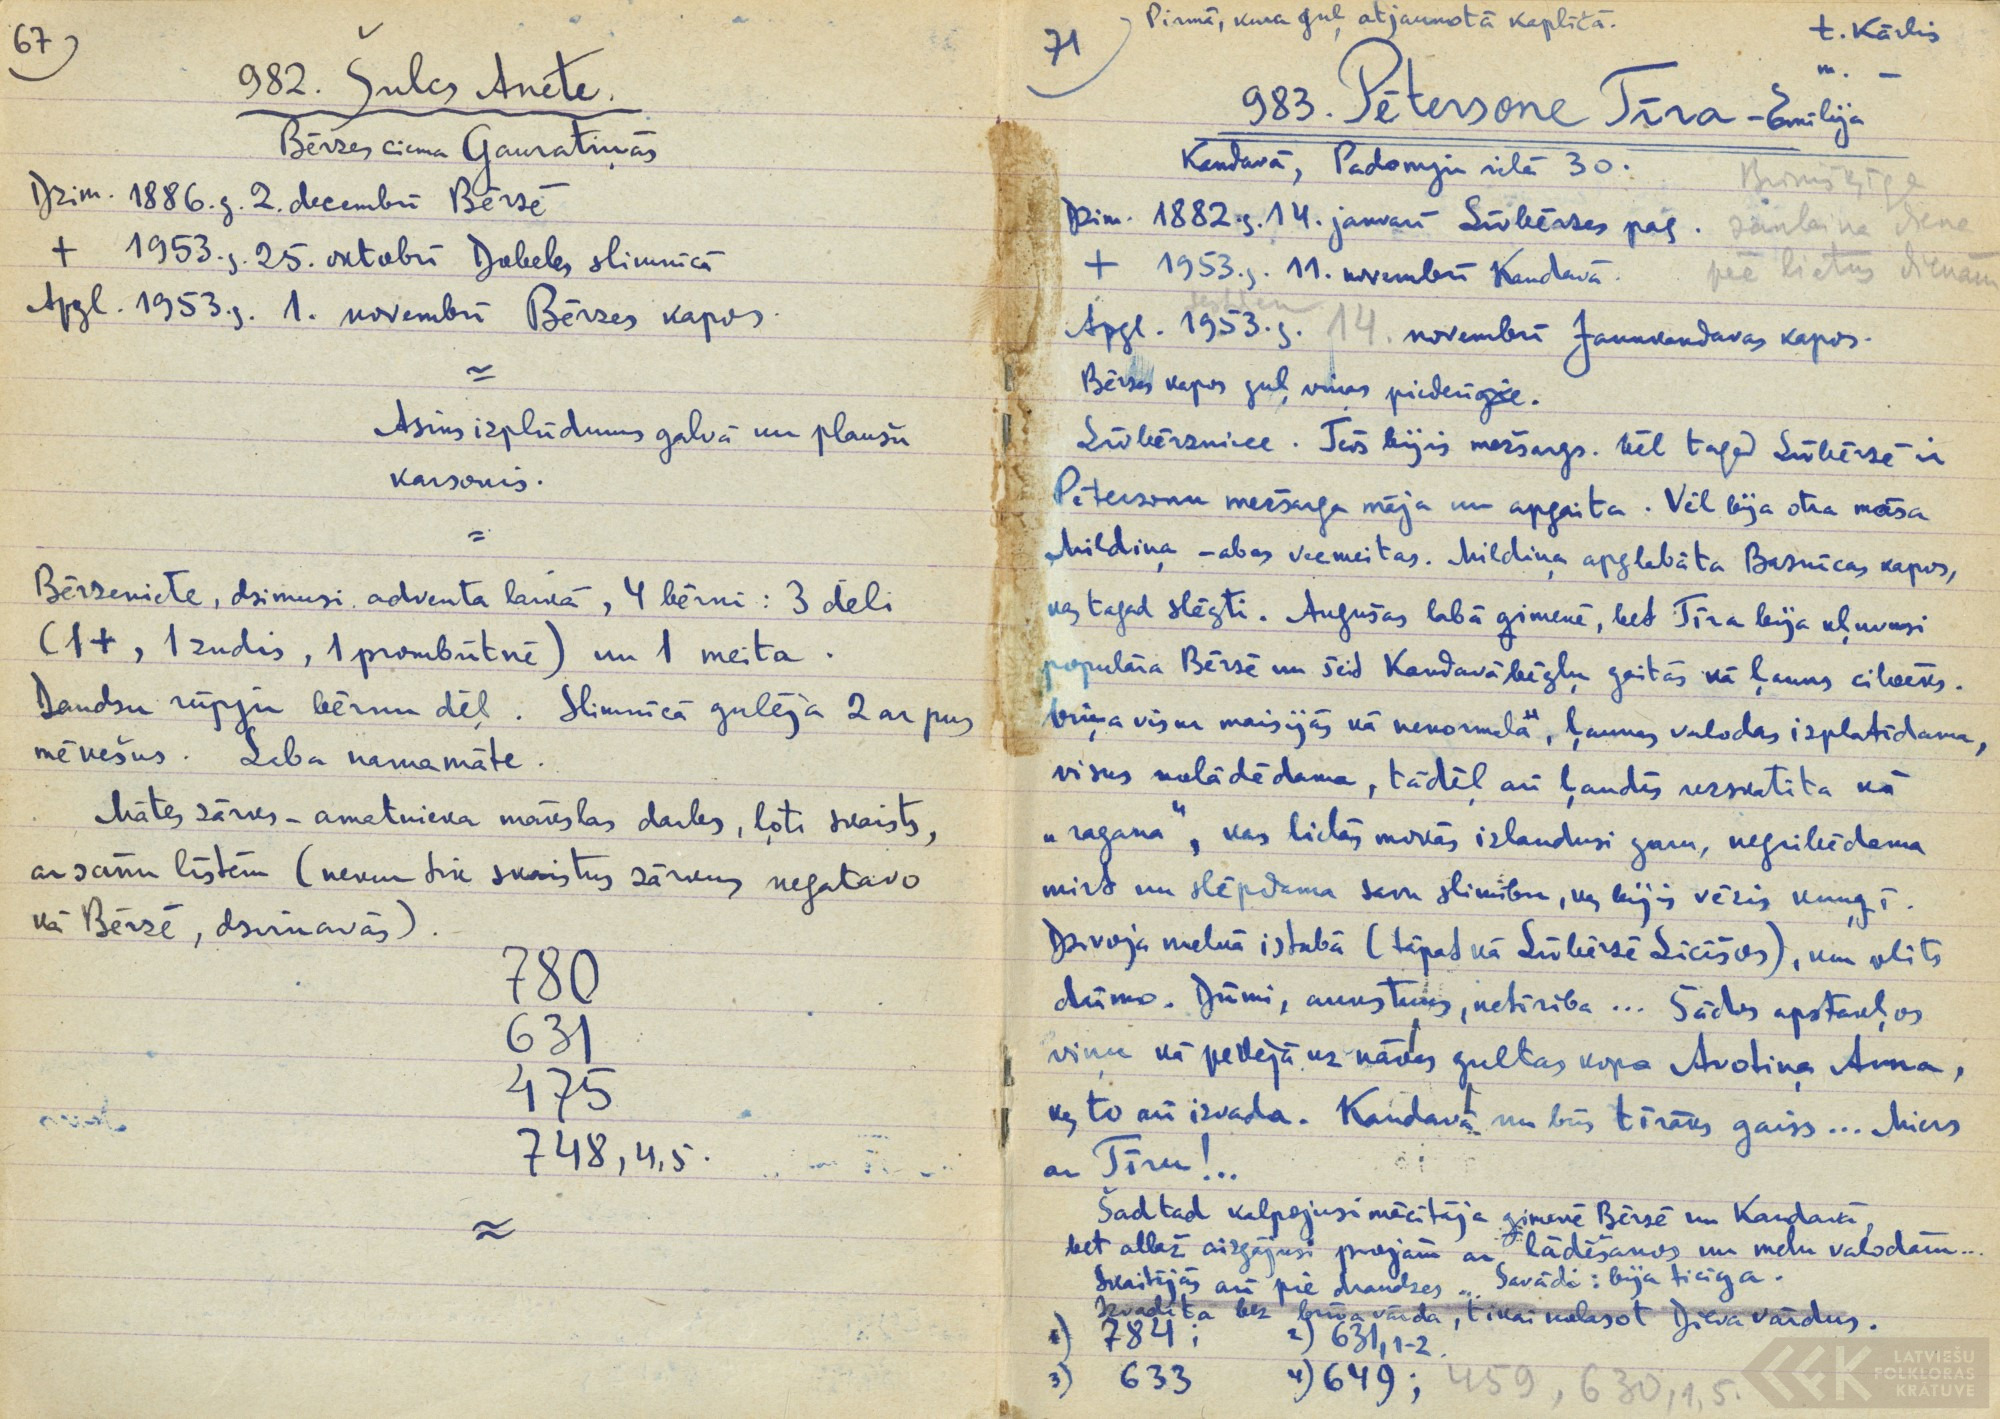 67
982. Šulcs Anete.
Bērzes ciema Gauratiņās
Dzim. 1886.g. 2. decembrī Bērzē
+ 1953.g. 25. oktobrī Dobeles slimnīcā
Apgl. 1953.g. 1. novembrī Bērzes kapos.
=
Asins izplūdums galvā un plaušu
karsonis.
=
Bērzeniete, dzimusi adventa laikā, 4 bērni: 3 dēli
(1+, 1 zudis, 1 prombūtnē) un 1 meita.
Daudzu rūpju bērnu dēļ. Slimnīcā gulēja 2 ar pus
mēnešus. Laba namamāte.
Mātes zārks – amatnieka mākslas darbs, ļoti skaists,
ar sānu līstēm (nekur tik skaistus zārkus negatavo
kā Bērzē, dzirnavās).
780
631
475
748,4,5.
≈
71
Pirmā, kura guļ atjaunotā kapličā.
t. Kārlis
m. –
983. Pētersone Tīra – Emīlija
Kandavā, Padomju ielā 30.
Dzim. 1882.g. 14. janvarī Līvbērzes pag.
+ 1953.g. 11. novembrī Kandavā.
Brīnišķīga
saulaina diena
pēc lietus dienām
sestdien
Apgl. 1953.g. 14. novembrī Jaunkandavas kapos.
Bērzes kapos guļ viņas piederīgie.
Līvbērzniece. Tēvs bijis mežsargs. Vēl tagad Līvbērzē ir
Pētersonu mežsarga māja un apgaita. Vēl bija otra māsa
Mildiņa – abas vecmeitas. Mildiņa apglabāta Baznīcas kapos,
kas tagad slēgti. Augušas labā ģimenē, bet Tīra bija kļuvusi
populāra Bērzē un šeit Kandavā bēgļu gaitās kā ļauns cilvēks.
Viņa visur maisījās kā nenormala", ļaunas valodas izplatīdama,
visus nolādēdama, tādēļ arī ļaudīs uzskatīta kā
„ragana", kas lielās mokās izlaidusi garu, negribēdama
mirt un slēpdama savu slimību, kas bijis vēzis kuņģī.
Dzīvoja melnā istabā (tāpat kā Līvbērzē Līcīšos), kur plīts
dūmo. Dūmi, aukstums, netīrība ... Šādos apstākļos
viņu kā pēdējā uz nāves gultas kopa Avotiņa Anna,
kas to arī izvada. Kandavā nu būs tīrāks gaiss ... Miers
ar Tīru!..
Šad tad kalpojusi mācītāja ģimenē Bērzē un Kandavā,
bet allaž aizgājusi projām ar lādēšanos un melu valodām ...
Skaitījās arī pie draudzes ... Savādi: bija ticīga.
Izvadīta bez brīva vārda, tikai nolasot Dieva vārdus.
1) 784; 2) 631,1-2.
3) 633 4) 649; 459, 630,1,5.
LATVIEŠU
FOLKLORAS
KRĀTUVE